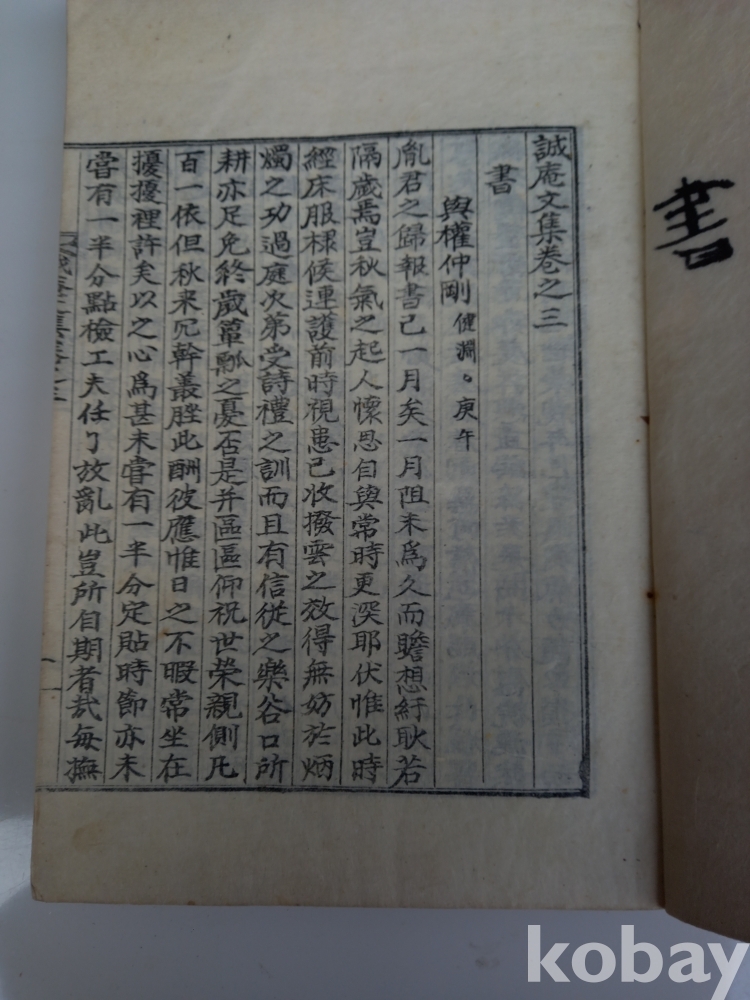 書
誠庵文集卷之三
書
與權仲剛 健淵。庚午
胤君之歸報書已一月矣一月阻未爲久而瞻想紆耿若
隔歲焉豈秋氣之起人懷思自與常時更深耶伏惟此時
經床服棣候連護前時視患已收撥雲之效得無妨於炳
燭之功過庭次第受詩禮之訓而且有信從之樂谷口所
耕亦足免終歲簞瓢之憂否是幷區區仰祝世榮親側凡
百一依但秋来冗幹叢脞此酬彼應惟日之不暇常坐在
擾擾裡許矣以之心爲甚未嘗有一半分定貼時節亦未
嘗有一半分點檢工夫任了放亂此豈所自期者哉每撫
kobay